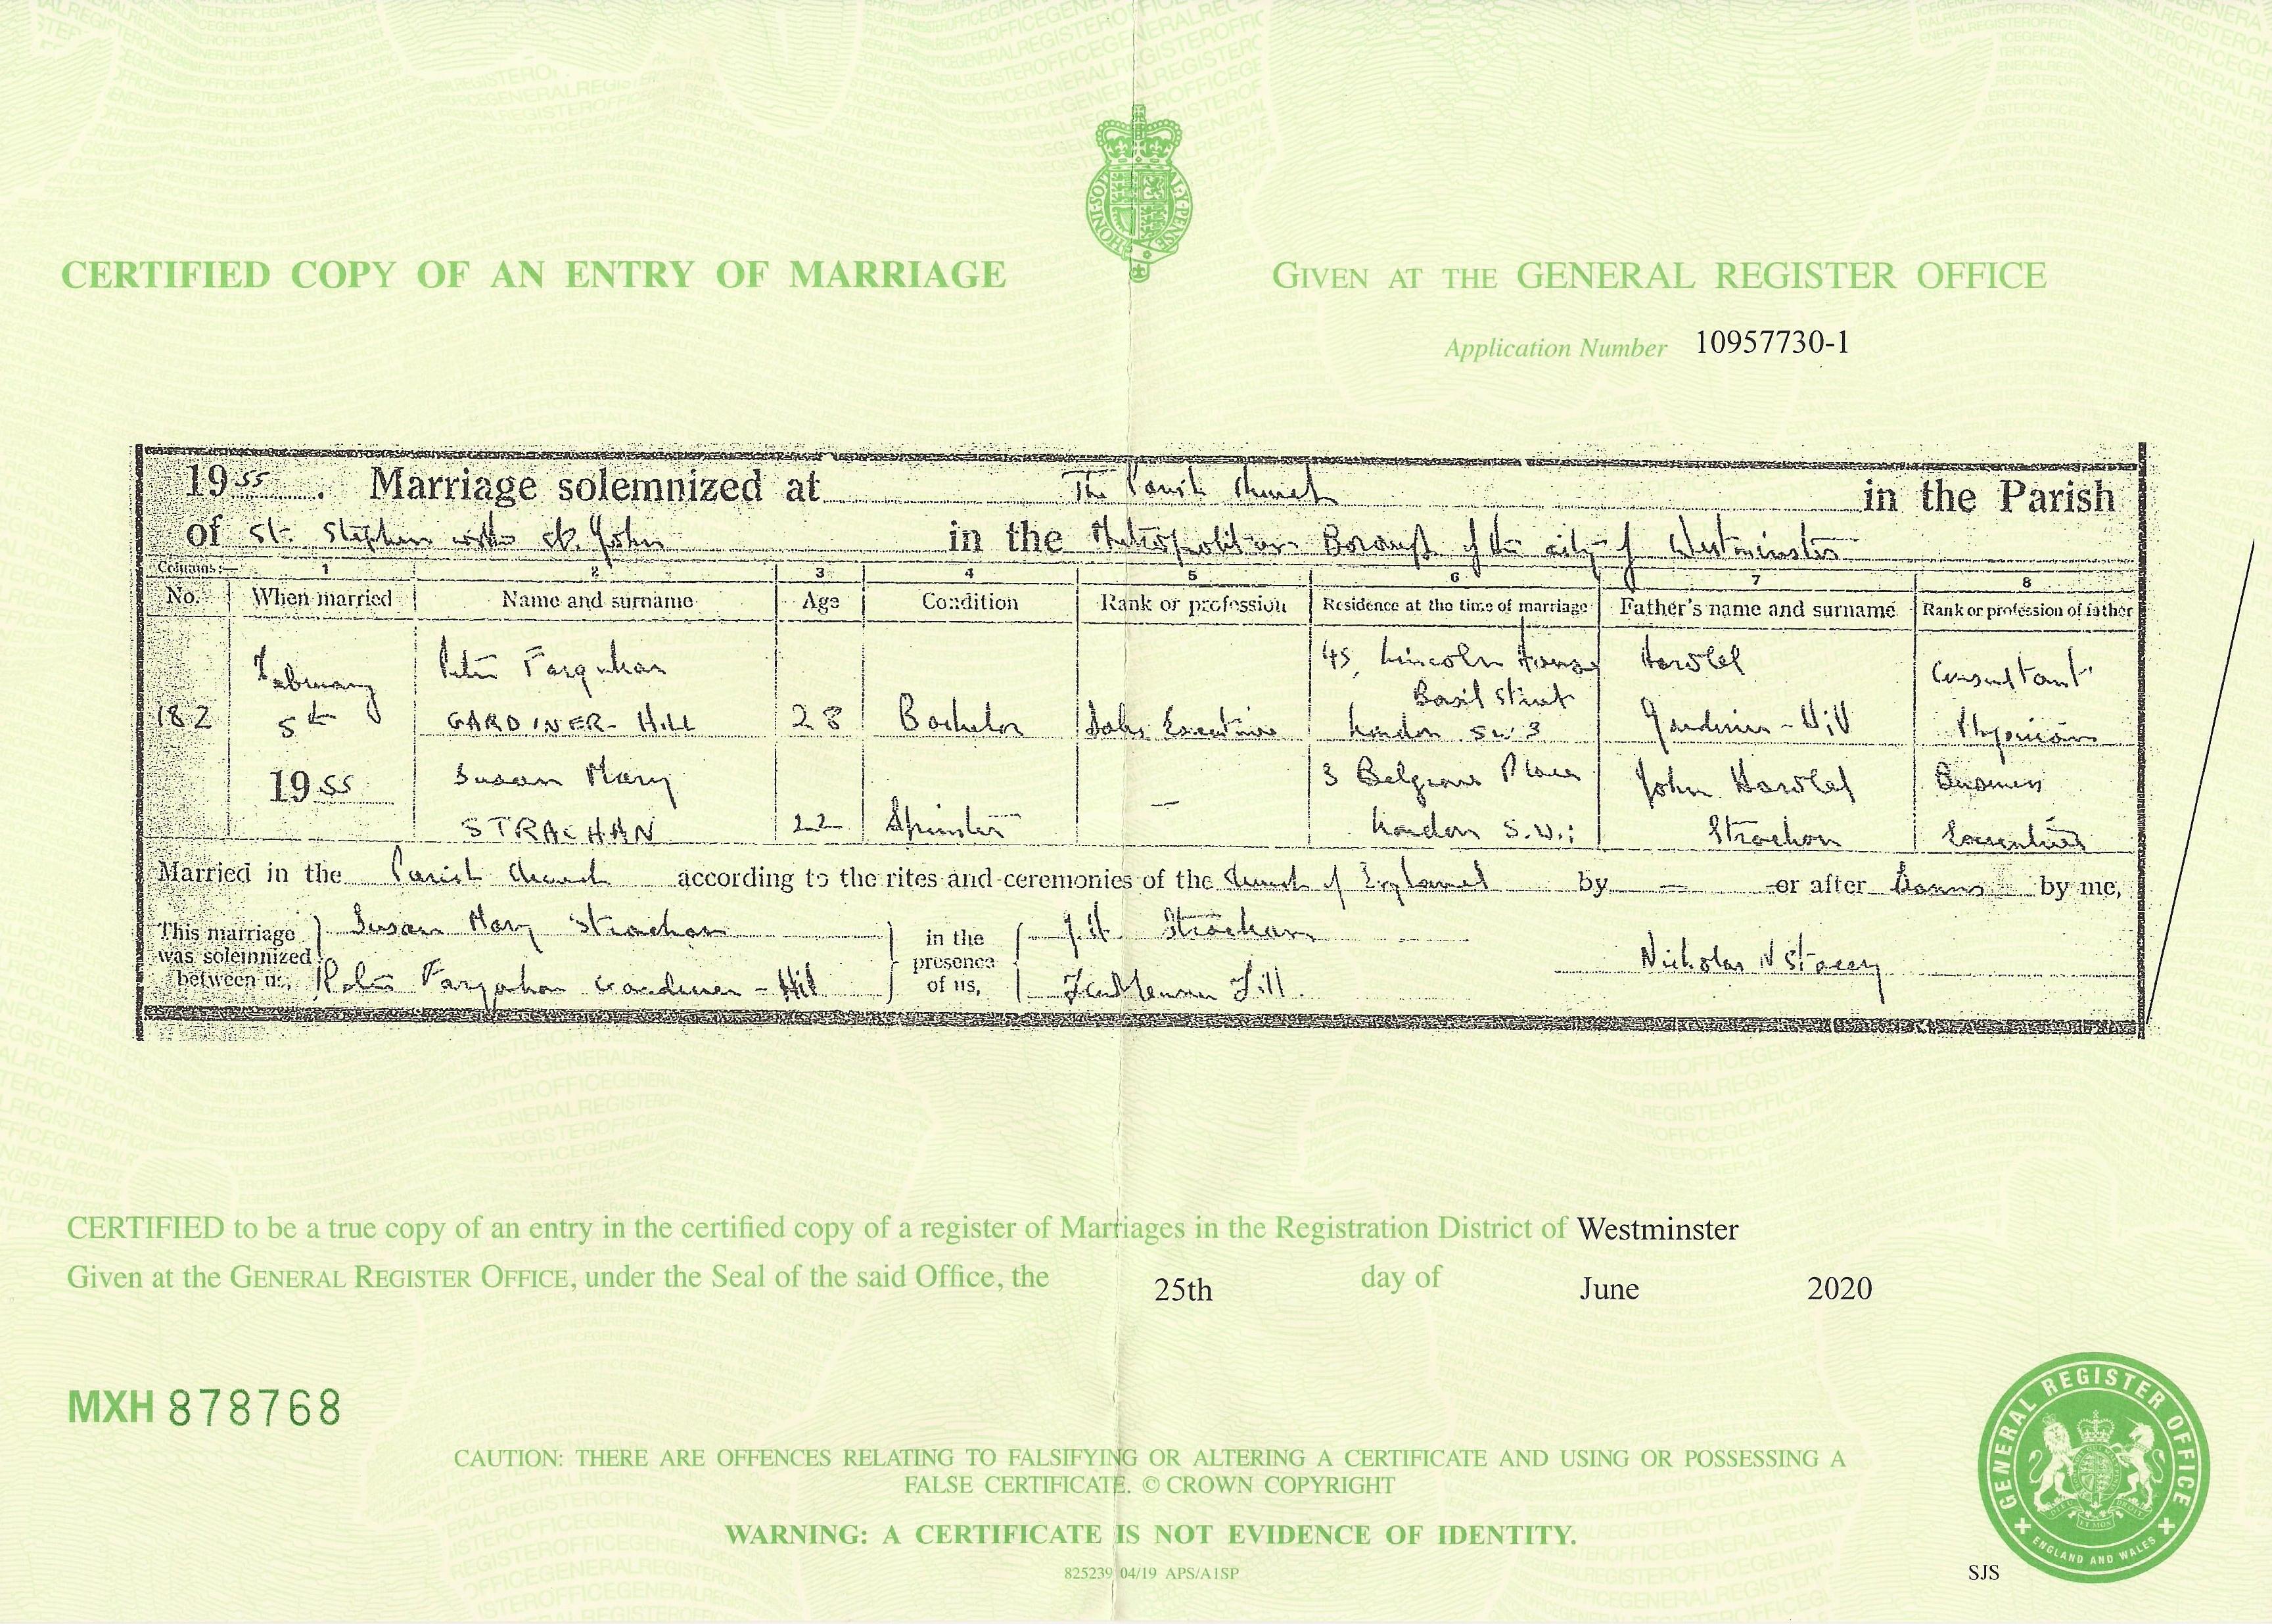 CERTIFIED COPY OF AN ENTRY OF MARRIAGE
GIVEN AT THE GENERAL REGISTER OFFICE
Application Number 10957730-1
1955. Marriage solemnized at The Parish Church in the Parish
of St. Stephen with St. John in the Metropolitan Borough of the city of Westminster
Columns:— 1 2 3 4 5 6 7 8
No. When married Name and surname Age Condition Rank or profession Residence at the time of marriage Father's name and surname Rank or profession of father
182 February 5th 1955
Peter Farquhar GARDINER-HILL 28 Bachelor Sales Executive 45, Lincoln House Basil Street London SW3 Harold Gardiner-Hill Consultant Physician
Susan Mary STRACHAN 22 Spinster — 3 Belgrave Place London S.W.1 John Harold Strachan Business Executive
Married in the Parish Church according to the rites and ceremonies of the Church of England by — or after Banns by me,
This marriage was solemnized between us, Susan Mary Strachan
Peter Farquhar Gardiner-Hill
in the presence of us, J.H. Strachan
Hill.
Nicholas N Stacey
CERTIFIED to be a true copy of an entry in the certified copy of a register of Marriages in the Registration District of Westminster
Given at the GENERAL REGISTER OFFICE, under the Seal of the said Office, the 25th day of June 2020
MXH 878768
CAUTION: THERE ARE OFFENCES RELATING TO FALSIFYING OR ALTERING A CERTIFICATE AND USING OR POSSESSING A
FALSE CERTIFICATE. © CROWN COPYRIGHT
WARNING: A CERTIFICATE IS NOT EVIDENCE OF IDENTITY.
825239 04/19 APS/A1SP
SJS
GENERAL REGISTER OFFICE
ENGLAND AND WALES